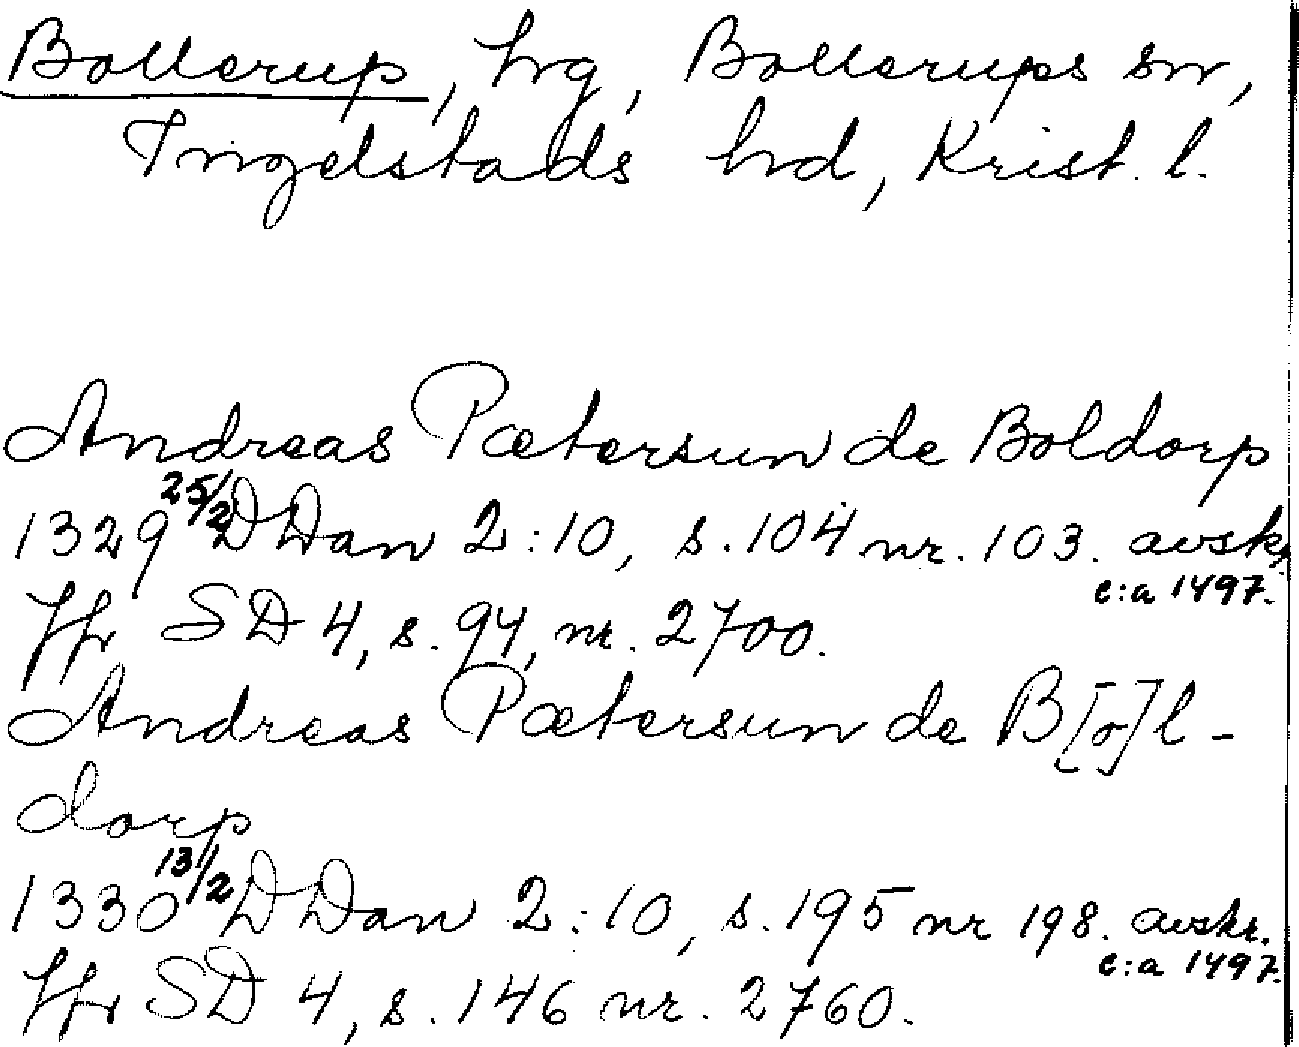 Bollerup, hrg, Bollerups sn,
Ingelstads hrd, Krist. l.
Andreas Pætersun de Boldorp
1329 25/2 DDan 2:10, s. 104 nr. 103. avskr.
c:a 1497.
Jfr SD 4, s. 94, nr. 2700.
Andreas Pætersun de B[o]l-
dorp
1330 13/2 DDan 2:10, s. 195 nr 198. avskr.
c:a 1497.
Jfr SD 4, s. 146 nr. 2760.